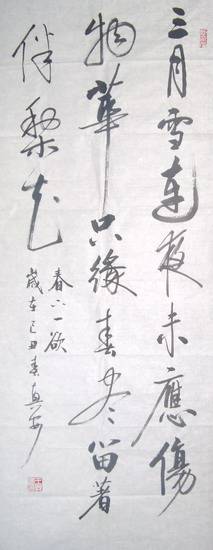 三月雪連夜未應傷
物華只緣春盡留著
伴梨花
春下一欲
歲在己丑春